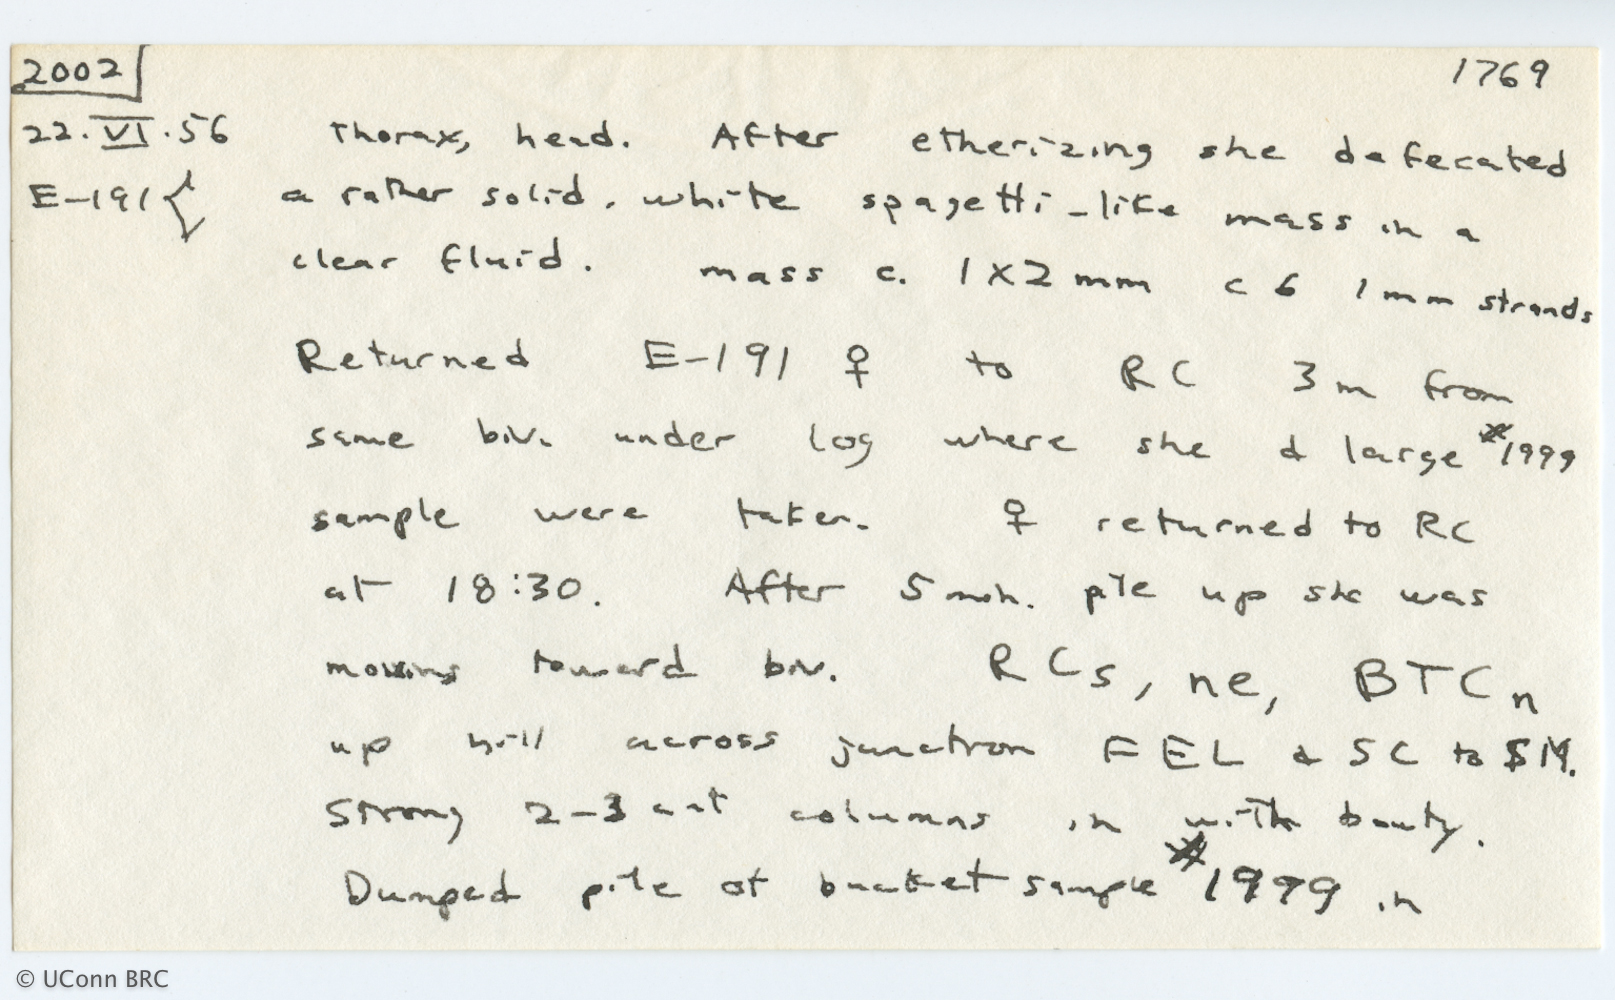 2002 1769
22.VI.56 Thorax, head. After etherizing she defecated
E-191 { a rather solid, white spagetti-like mass in a
clear fluid. mass c. 1 x 2 mm c 6 1 mm strands
Returned E-191 ♀ to RC 3 m from
same biv. under log where she & large #1999
sample were taken. ♀ returned to RC
at 18:30. After 5 min. pile up she was
moving toward biv. RCs, ne, BTCn
up hill across junction FEL & SC to SM.
Strong 2-3 ant columns in with booty.
Dumped pile of bucket sample #1999 in
© UConn BRC